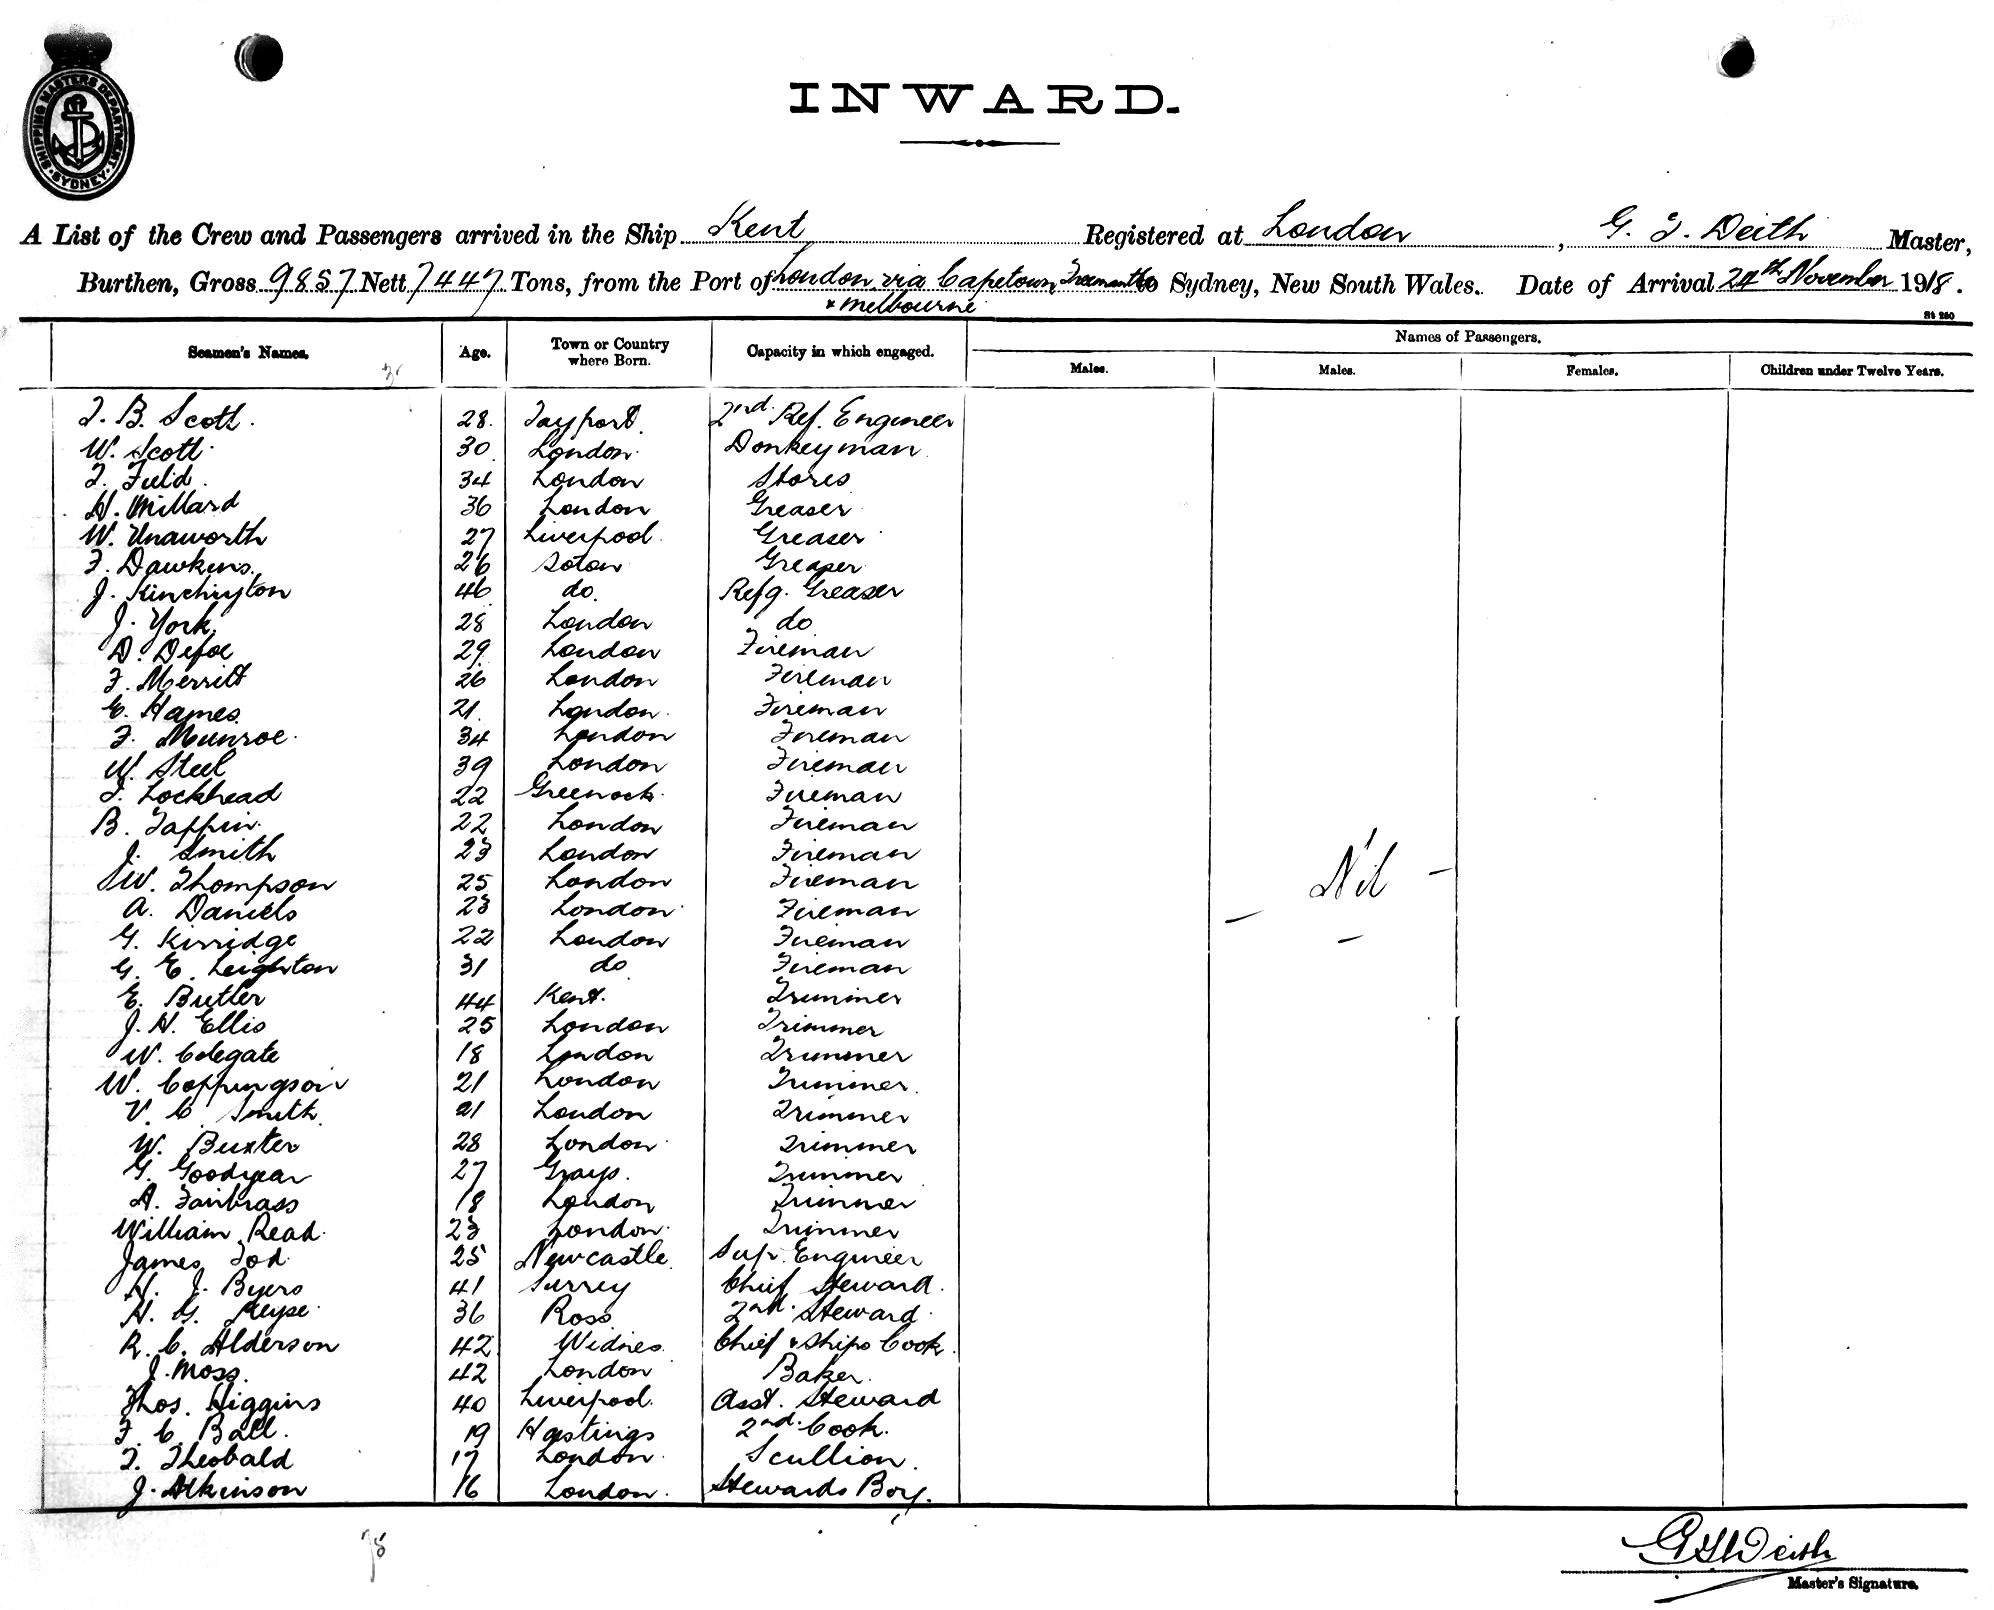 SHIPPING MASTERS DEPARTMENT · SYDNEY ·
INWARD.
A List of the Crew and Passengers arrived in the Ship Kent Registered at London, G. T. Deith Master,
Burthen, Gross 9857 Nett 7447 Tons, from the Port of London via Capetown, Fremantle to Sydney, New South Wales. Date of Arrival 24th November 1918.
& Melbourne
St 250
Seamen's Names. Age. Town or Country where Born. Capacity in which engaged. Names of Passengers.
Males. Males. Females. Children under Twelve Years.
T. B. Scott. 28. Tayport. 2nd. Ref. Engineer
W. Scott. 30 London. Donkeyman
T. Field. 34 London Stores
H. Millard 36 London Greaser
W. Unaworth 27 Liverpool. Greaser
F. Dawkins. 26 Soton Greaser
J. Kinchington 46 do. Refg. Greaser
J. York. 28 London do
D. Defoe 29. London Fireman
F. Merritt 26 London Fireman
E. Hames. 21. London. Fireman
F. Munroe. 34 London Fireman
W. Steel 39 London Fireman
T. Lockhead 22 Greenock. Fireman
B. Tappin. 22 London Fireman
J. Smith 23 London Fireman
W. Thompson 25 London Fireman
A. Daniels 23 London. Fireman
G. Kirridge 22 London Fireman
G. E. Leighton 31 do Fireman
E. Butler 44 Kent. Trimmer
J. H. Ellis 25 London Trimmer
W. Colegate 18 London Trimmer
W. 21 London Trimmer.
V. C. Smith. 21 London Trimmer
W. Buxter 28 London. Trimmer
G. Goodyear 27 Grays. Trimmer
A. Fairbrass 18 London Trimmer
William Read. 23 London. Trimmer
James Tod. 25 Newcastle. Sup. Engineer
H. J. Byers 41 Surrey Chief Steward.
H. G. 36 Ross 2nd. Steward.
R. C. Alderson 42 Widnes. Chief & Ships Cook.
J. Moss. 42 London Baker.
Thos. Higgins 40 Liverpool. Asst. Steward
F. C. Ball. 19 Hastings 2nd. Cook.
T. Theobald 17 London. Scullion.
J. Atkinson 16 London. Stewards Boy.
Nil
38
G T Deith
Master's Signature.